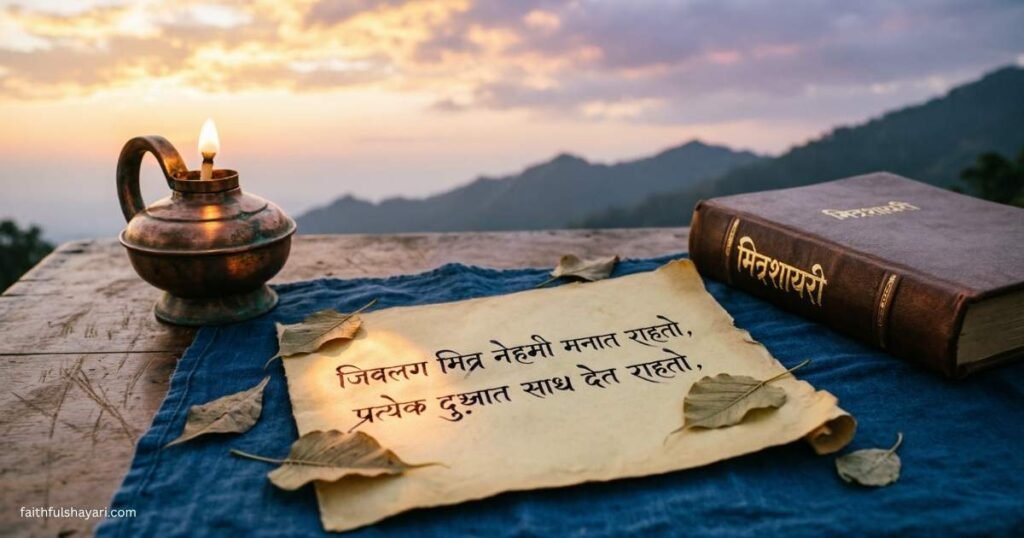 जिवलग मित्र नेहमी मनात राहतो,
प्रत्येक दुःखात साथ देत राहतो,
मित्रशायरी
faithfulshayari.com